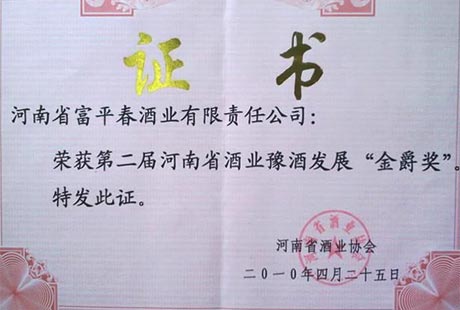 证书
河南省富平春酒业有限责任公司：
荣获第二届河南省酒业豫酒发展“金爵奖”。
特发此证。
河南省酒业协会
二〇一〇年四月二十五日
河南省酒业协会